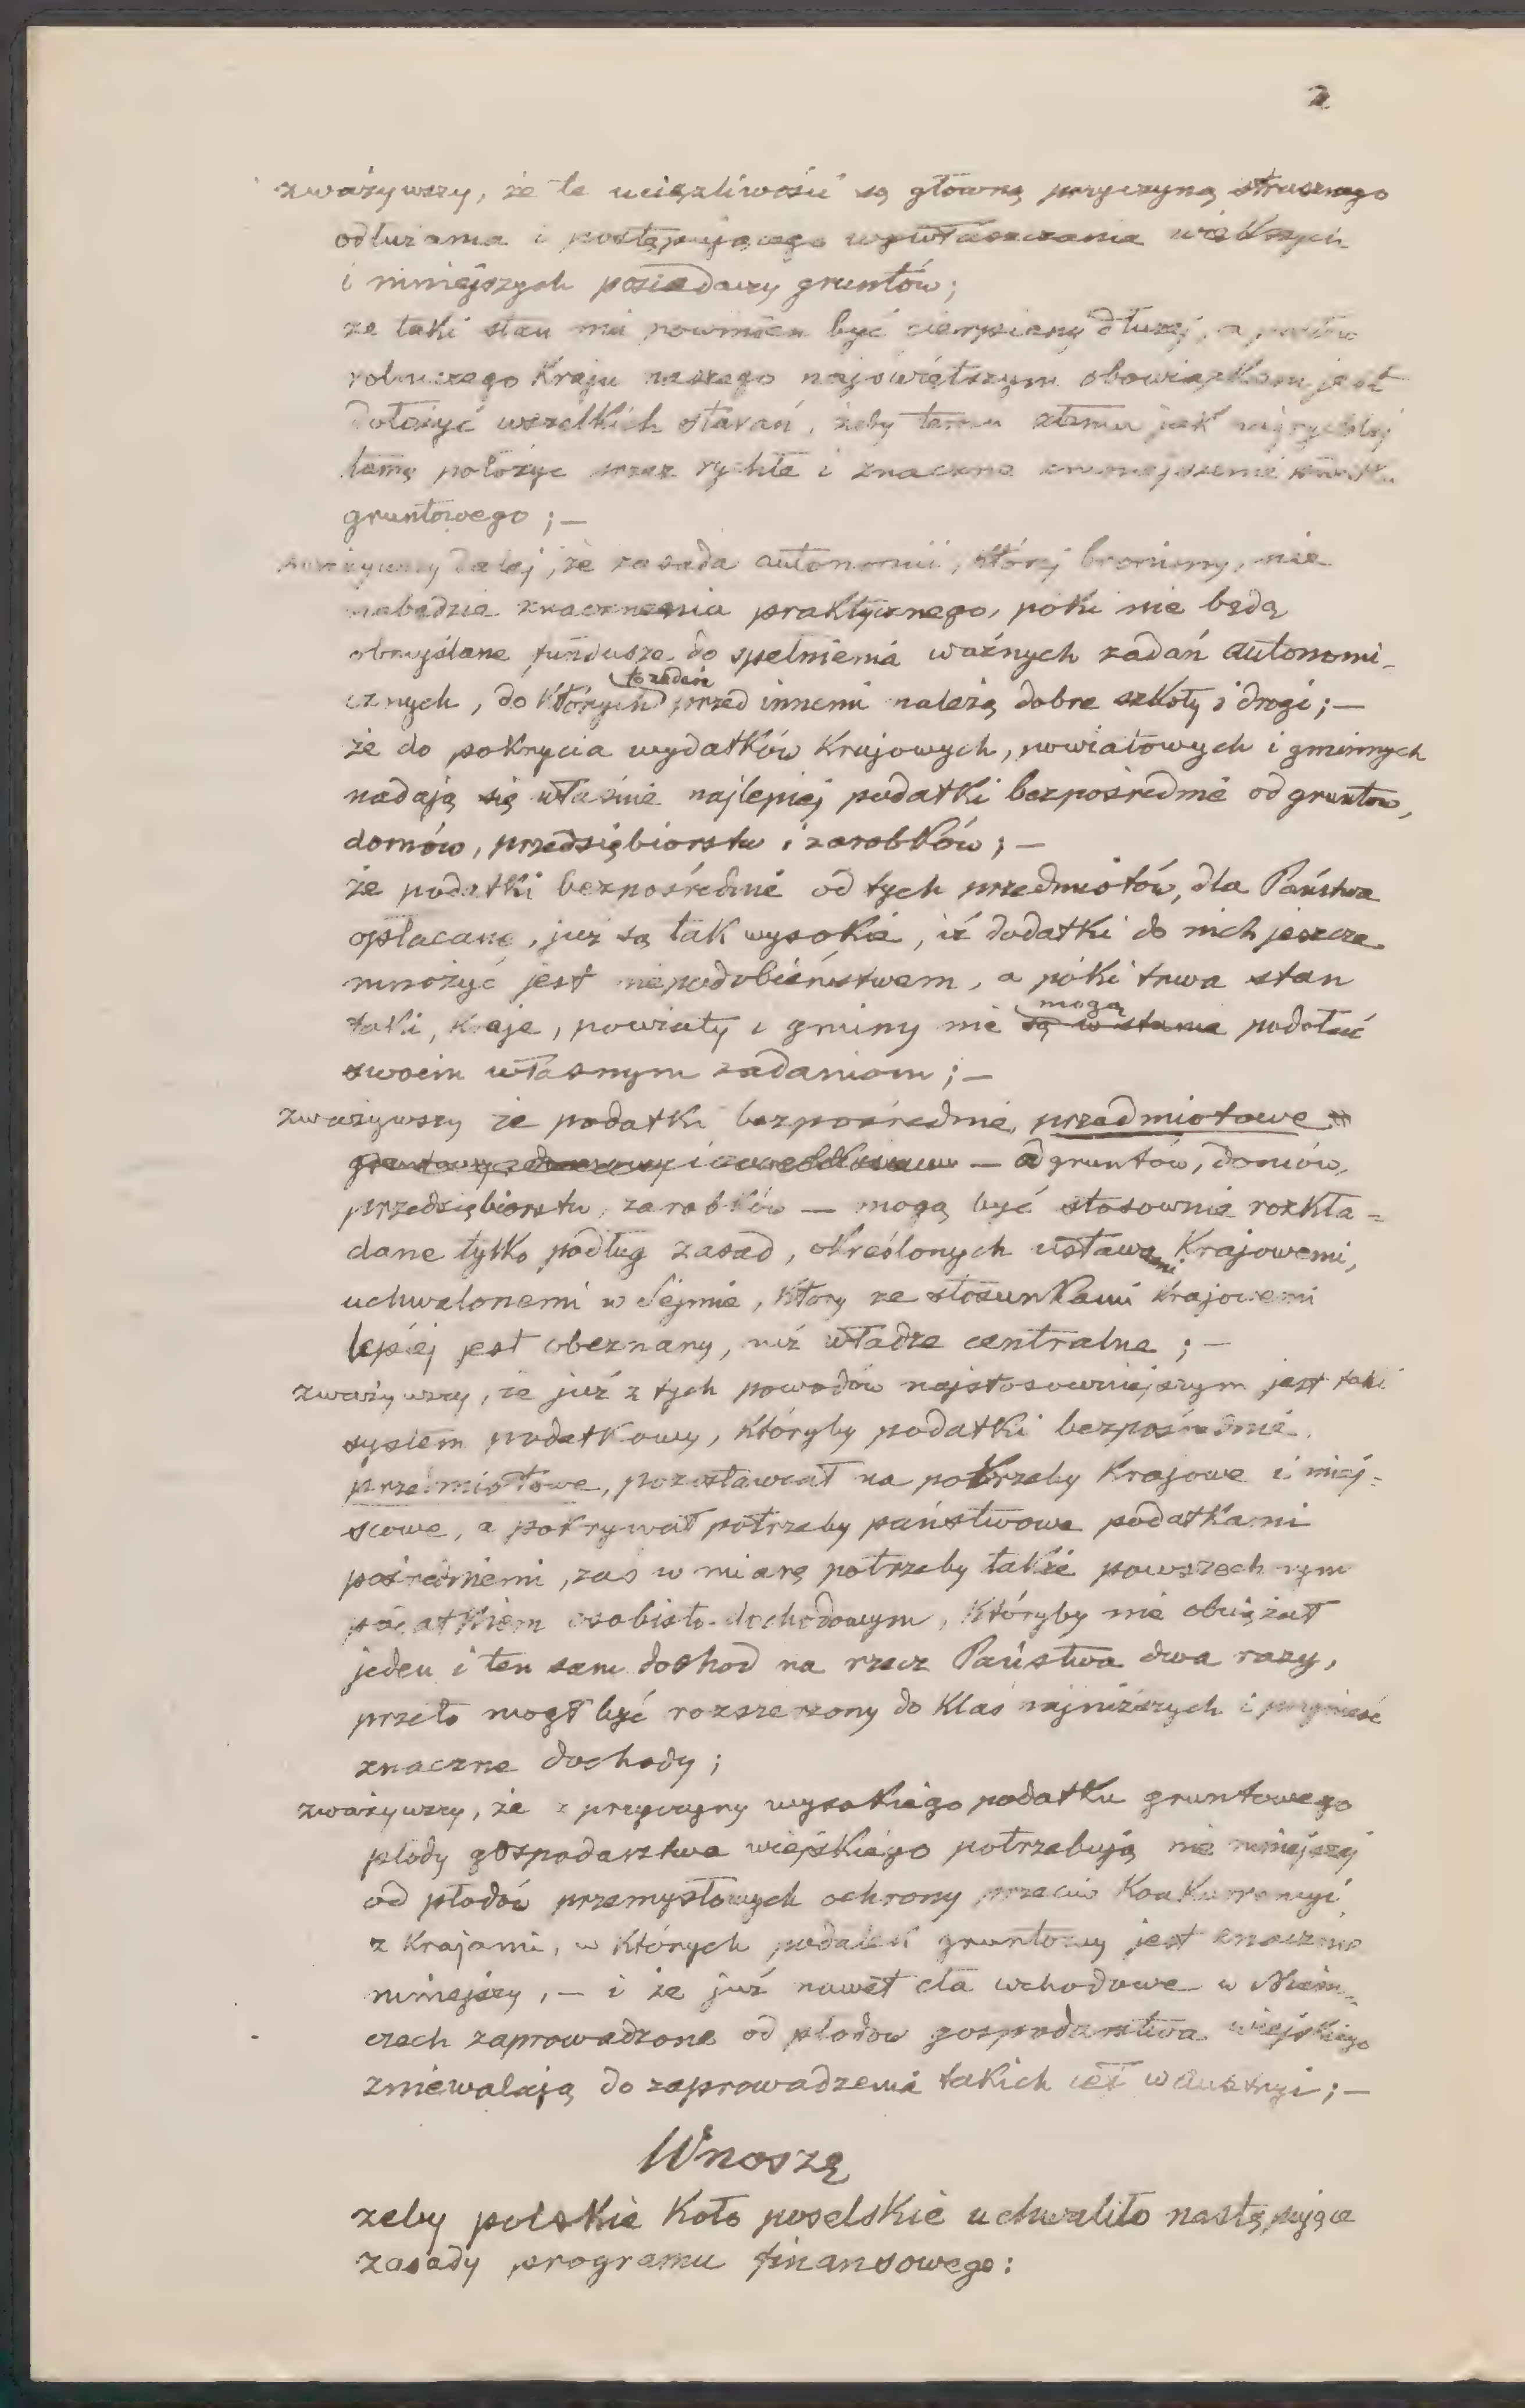 2
zważywszy, że te uciążliwości są główną przyczyną strasznego
odłużania i postępującego wywłaszczania większych
i mniejszych posiadaczy gruntów;
że taki stan nie powinien być cierpiany dłużej, a posłów
rolniczego Kraju naszego najświętszym obowiązkiem jest
dołożyć wszelkich starań, żeby temu złemu jak najrychlej
tamę położyć przez rychłe i znaczne zmniejszenie podatku
gruntowego; —
zważywszy dalej, że zasada autonomii, której bronimy, nie
nabędzie znaczenia praktycznego, póki nie będą
obmyślane fundusze do spełnienia ważnych zadań autonomi-
cznych, do których to zadań przed innemi należą dobre szkoły i drogi; —
że do pokrycia wydatków Krajowych, powiatowych i gminnych
nadają się właśnie najlepiej podatki bezpośrednie od gruntów,
domów, przedsiębiorstw i zarobków; —
że podatki bezpośrednie od tych przedmiotów, dla Państwa
opłacane, już są tak wysokie, iż dodatki do nich jeszcze
mnożyć jest niepodobieństwem, a póki trwa stan
taki, kraje, powiaty i gminy nie są w stanie mogą podołać
swoim własnym zadaniom; —
zważywszy że podatki bezpośrednie, przedmiotowe
— od gruntów, domów,
przedsiębiorstw, zarobków — mogą być stosownie rozkła=
dane tylko podług zasad, określonych ustawami Krajowemi,
uchwalonemi w Sejmie, który ze stosunkami krajowemi
lepiej jest obeznany, niż władze centralne; —
zważywszy, że już z tych powodów najstosowniejszym jest taki
system podatkowy, któryby podatki bezpośrednie,
przedmiotowe, pozostawiał na potrzeby Krajowe i miej=
scowe, a pokrywał potrzeby państwowe podatkami
pośredniemi, zaś w miarę potrzeby także powszechnym
podatkiem osobisto-dochodowym, któryby nie obciążał
jeden i ten sam dochod na rzecz Państwa dwa razy,
przeto mogł być rozszerzony do klas najniższych i przynieść
znaczne dochody;
zważywszy, że z przyczyny wysokiego podatku gruntowego
płody gospodarstwa wiejskiego potrzebują nie mniejszej
od płodów przemysłowych ochrony przeciw Konkurrencyi
z Krajami, w których podatek gruntowy jest znacznie
mniejszy, — i że już nawet cła wchodowe w Niem=
czech zaprowadzone od płodów gospodarstwa wiejskiego
zniewalają do zaprowadzenia takich ceł w Austryi; —
Wnoszę
żeby polskie Koło poselskie uchwaliło następujące
zasady programu finansowego: